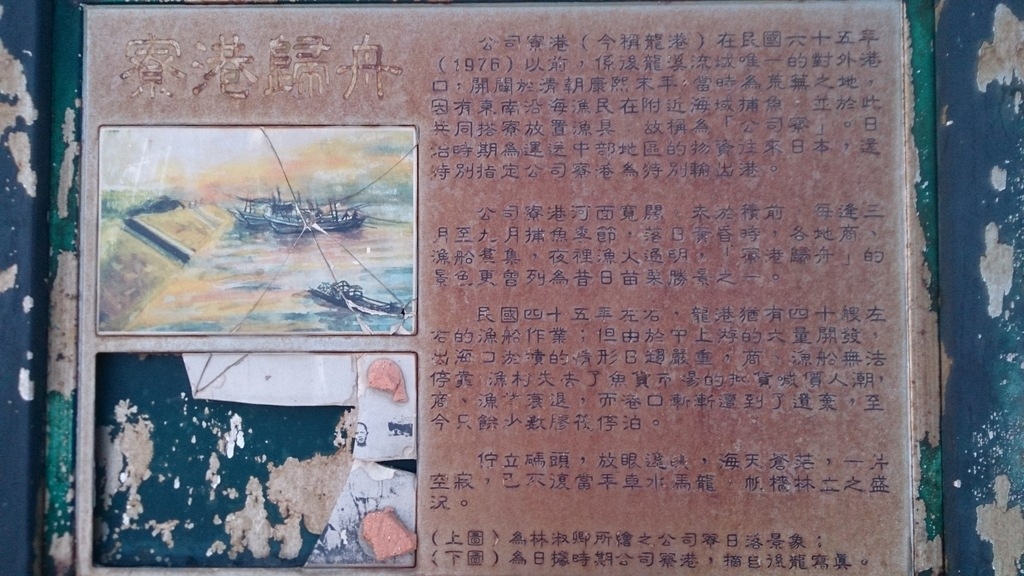 寮港歸舟
公司寮港（今稱龍港）在民國六十五年
（1976）以前，係後龍溪流域唯一的對外港
口，開闢於清朝康熙末年，當時為荒蕪之地，
因有東南沿海漁民在附近海域捕魚，並於此
共同搭寮放置漁具，故稱為「公司寮」。日
治時期為運送中部地區的物資往來日本，還
特別指定公司寮港為特別輸出港。
公司寮港河面寬闊，未於積前，每逢三、
月至九月捕魚季節，落日黃昏時，各地商、
漁船蝟集，夜裡漁火通明，「寮港歸舟」的
景色更曾列為昔日苗栗勝景之一。
民國四十五年左右，龍港猶有四十艘左
右的漁船作業；但由於中上游的大量開發，
出海口淤積的情形日趨嚴重，商、漁船無法
停靠，漁村失去了魚貨市場的批貨喊價人潮，
商、漁業衰退，而港口漸漸遭到了遺棄，至
今只餘少數膠筏停泊。
佇立碼頭，放眼邊，海天蒼茫，一片
空寂，已不復當年車水馬龍，帆檣林立之盛
況。
（上圖）為林淑卿所繪之公司寮日落景象；
（下圖）為日據時期公司寮港，摘自後龍寫真。